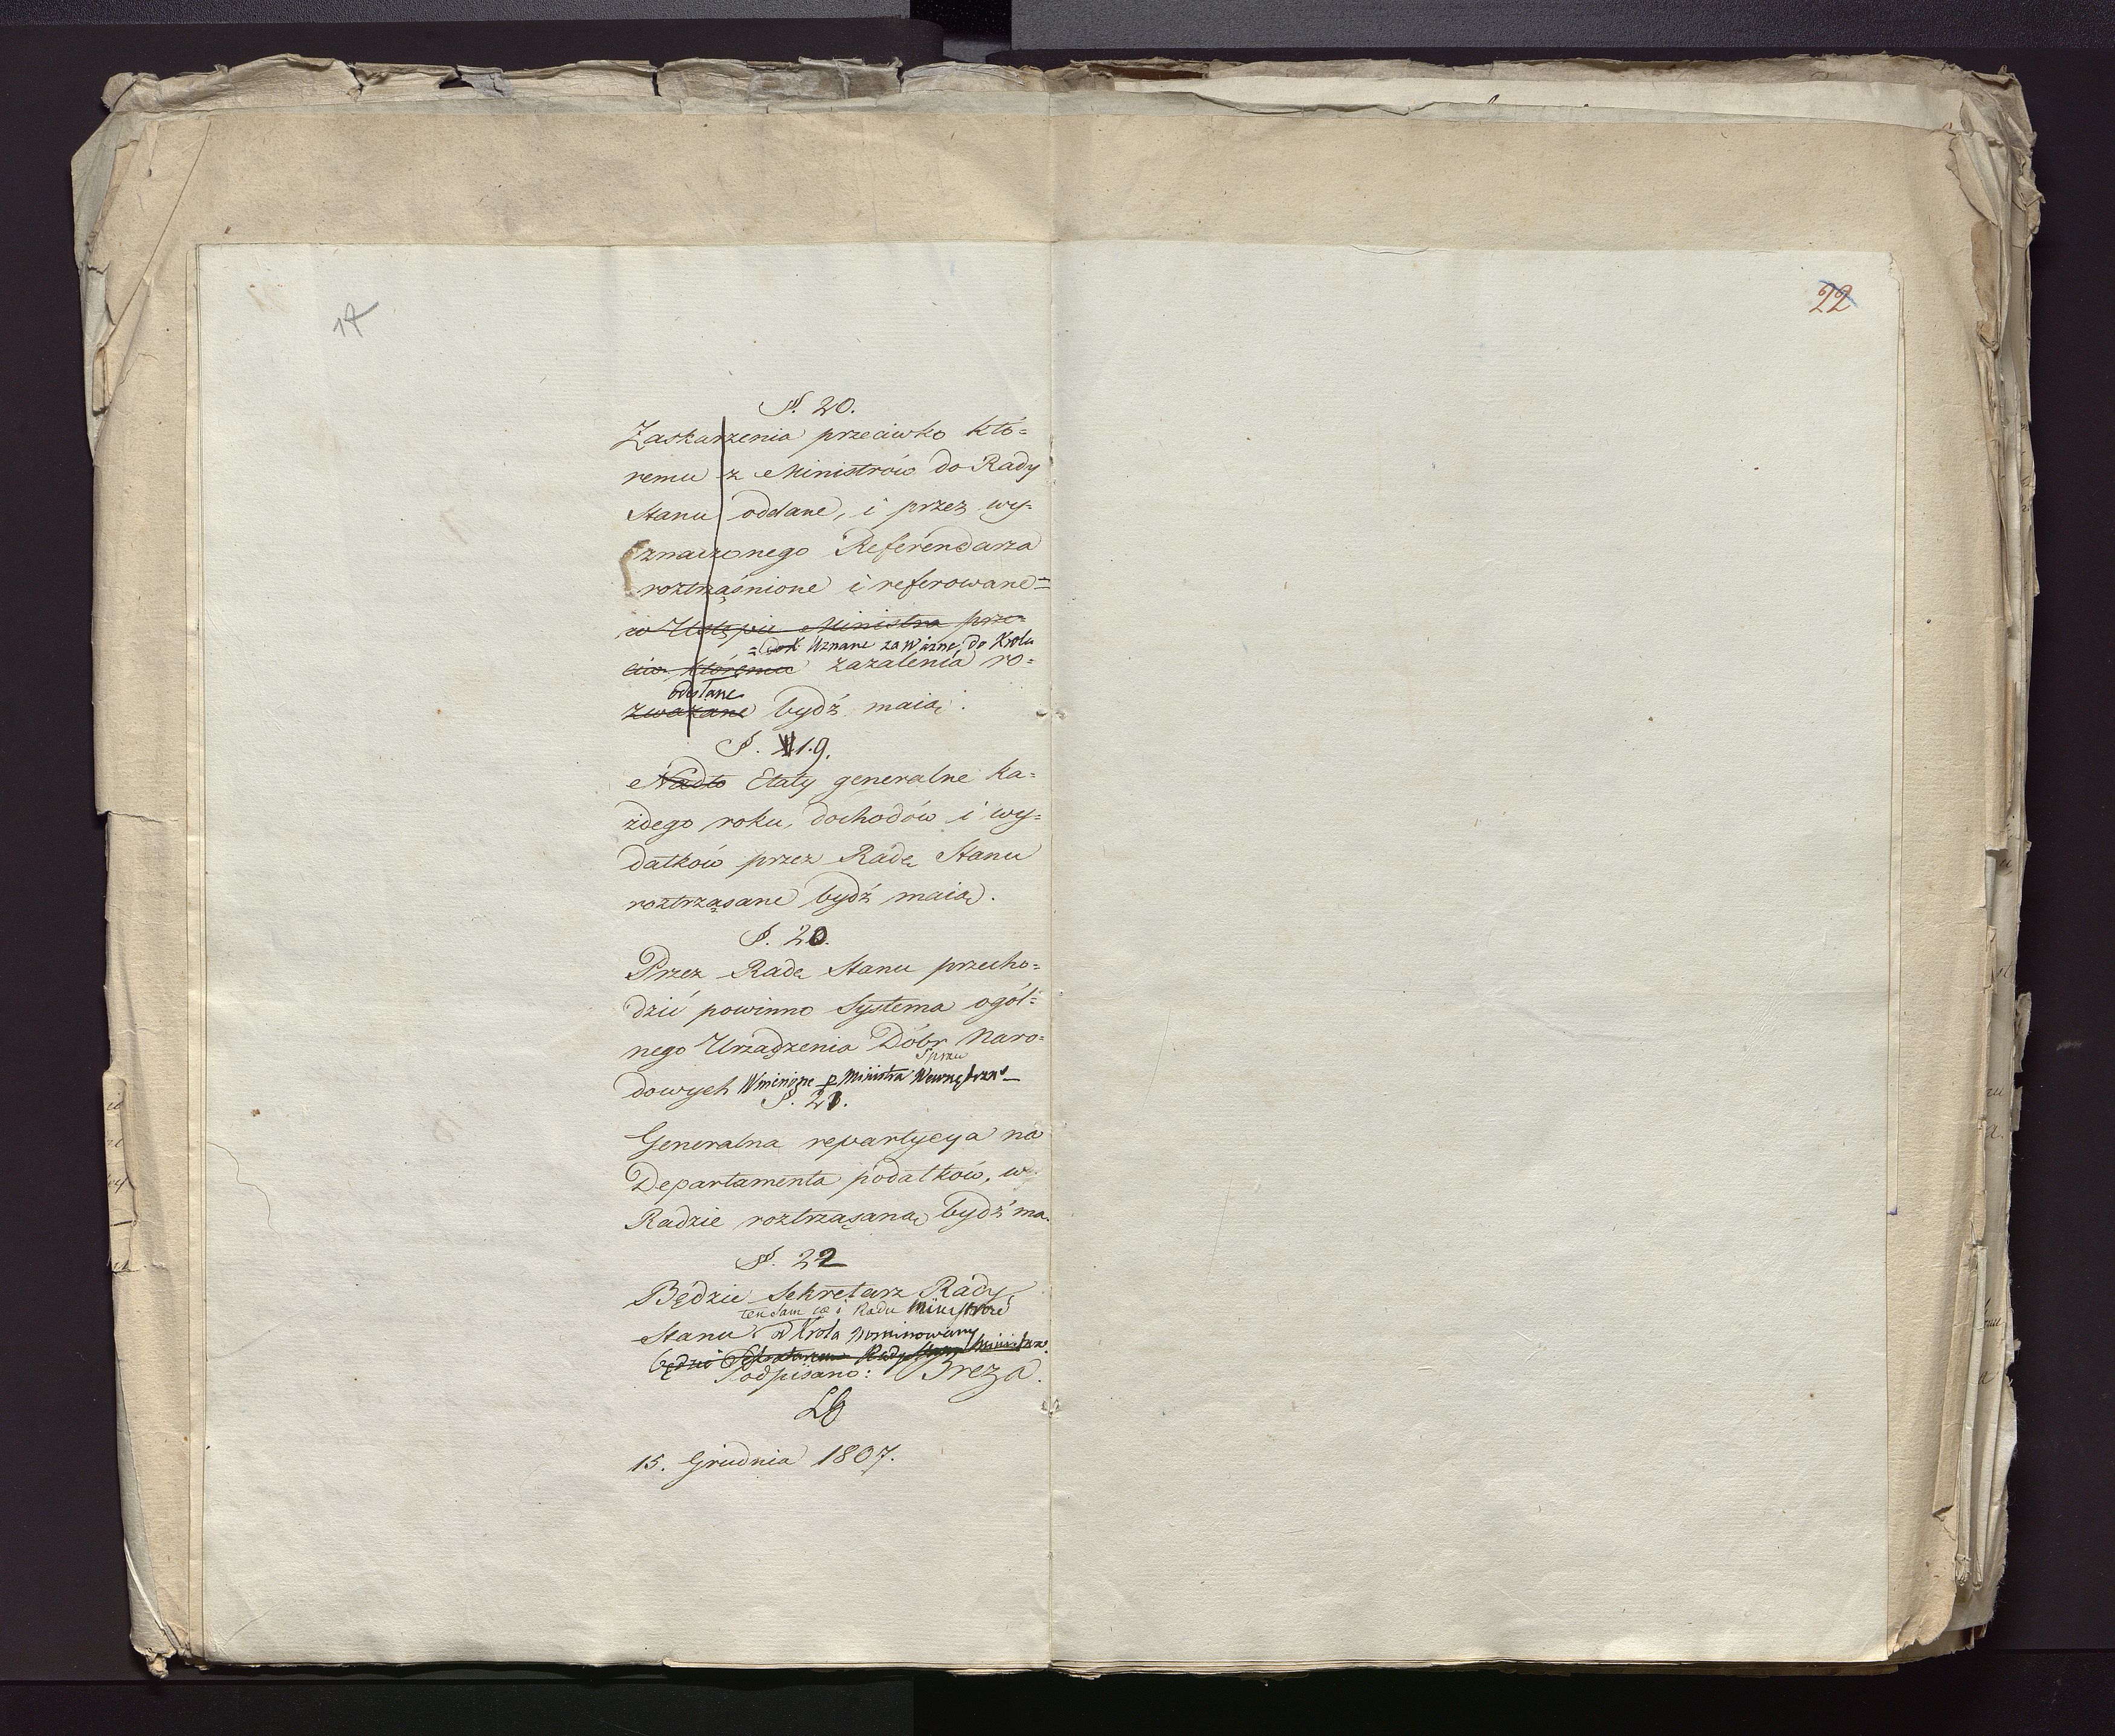 17
22
§. 20.
Zaskarzenia przeciwko któ=
remu z Ministrów do Rady
Stanu oddane, i przez wy=
znaczonego Referendarza
roztrząśnione i referowane=
w Ustępie Ministra prze=
= Uznane za ważne, do Krola
ciw któremu zażalenia ro=
odesłane
zwazane bydź maią.
§. 19.
Nadto Etaty generalne ka=
żdego roku, dochodów i wy=
datków przez Radę Stanu
roztrząsane bydź maią.
§. 20.
Przez Radę Stanu przecho=
dzić powinno Systema ogól=
nego Urządzenia Dóbr Naro=
dowych Wniesione p Ministra Wewnętrzn
§. 21.
Generalna repartycya na
Departamenta podatków, w
Radzie roztrząsaną bydź ma.
§. 22
Będzie Sekretarz Rady
ten sam co i Rady Ministrów
Stanu od Krola nominowany
będzie Sekretarzem Rady
Podpisano: Breza.
15. Grudnia 1807.